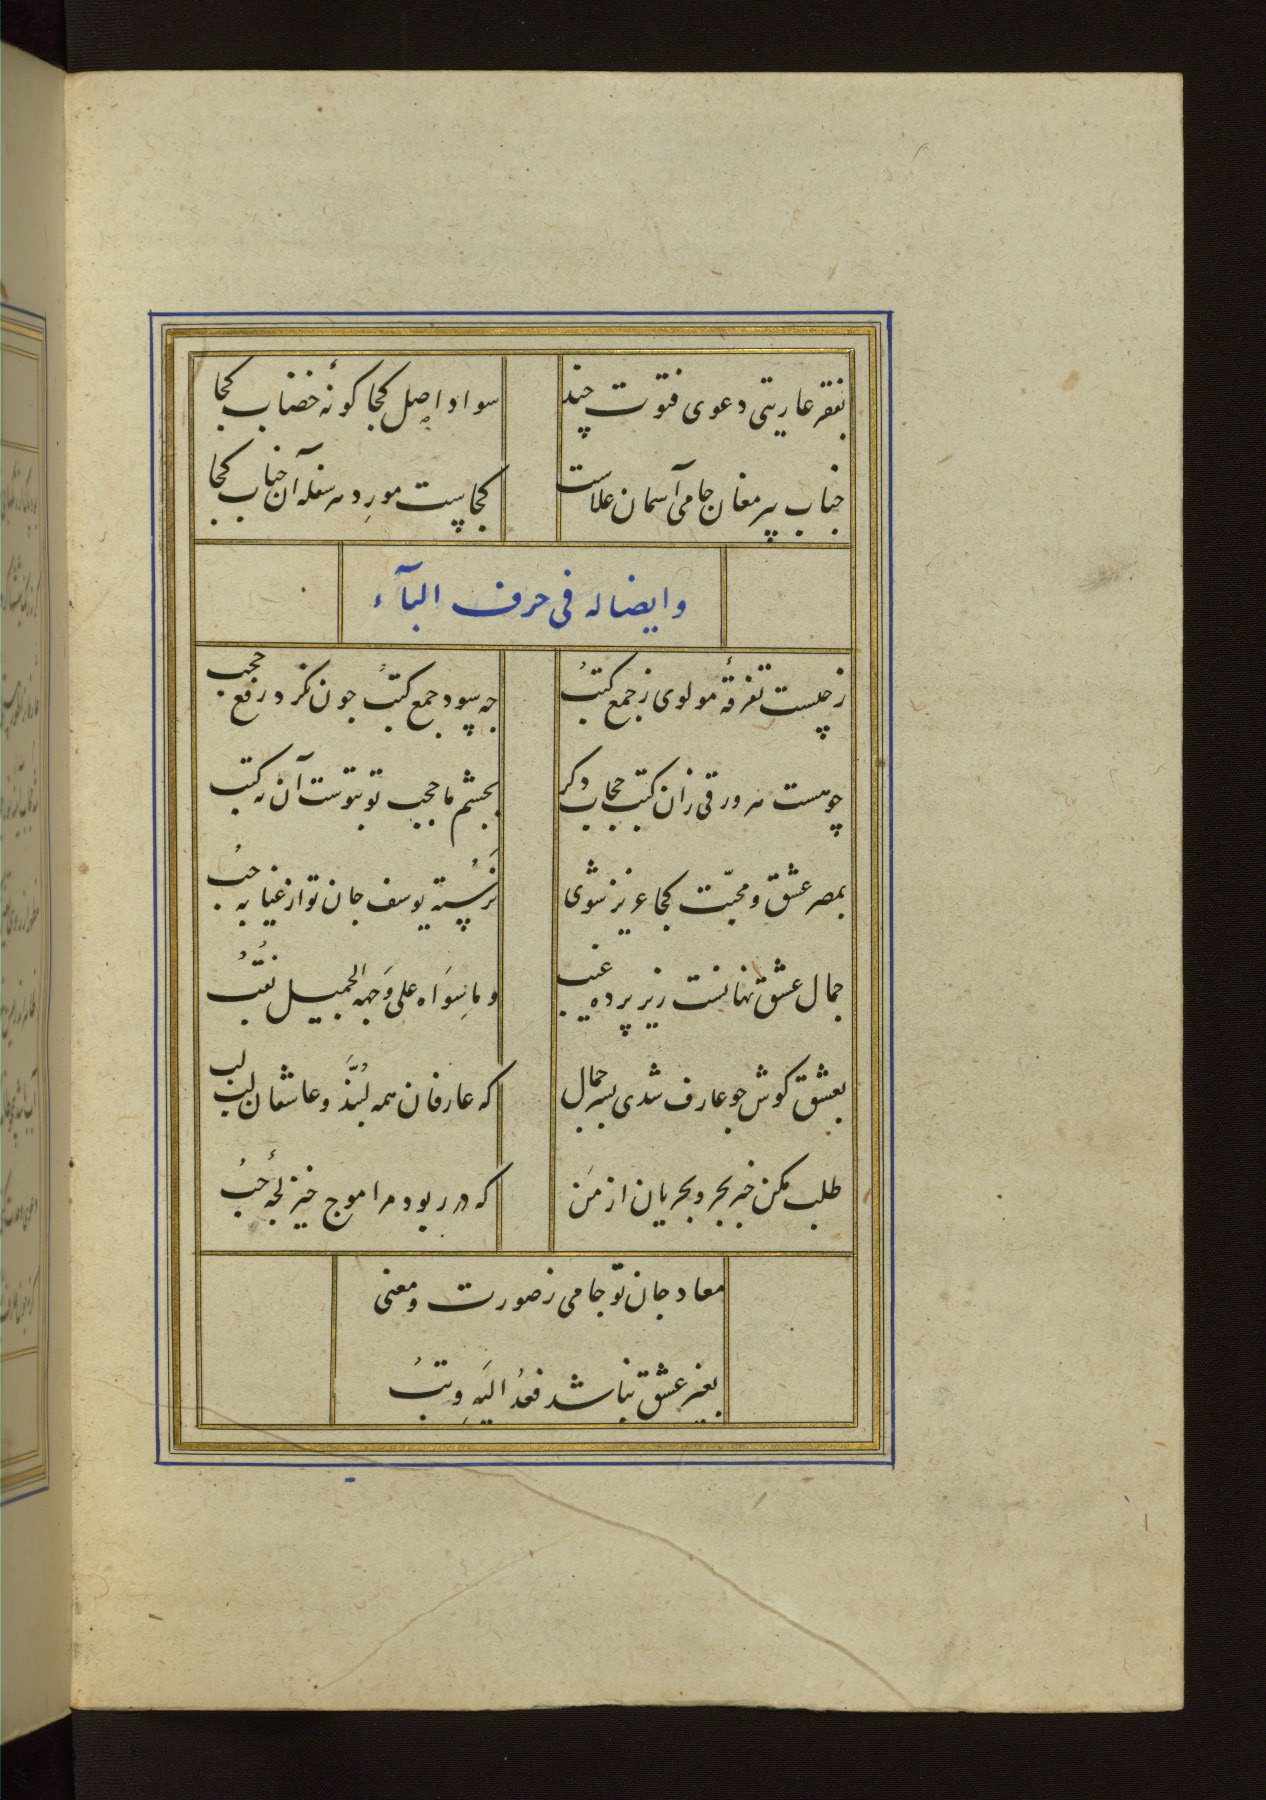 بفقر عاریتی دعوی فتوت چند
سواد اصل کجا کونهٔ خضاب کجا
جناب پیر مغان جامی آسمان علاست
کجاست مورد هر سفله آن جناب کجا
وایضا له فی حرف البآء
ز چیست تفرقهٔ مولوی ز جمع کتبُ
جه سود جمع کتبُ جون نکرد رفع حجب
چو هست هر ورقی زان کتب حجاب دکر
بجشم ما حجب تو بتوست آن نه کتب
بمصر عشق و محبّت کجا عزیز شوی
نَرُسته یوسف جان تو از غیابه جبُ
جمال عشق نهانست زیر پردهٔ غیب
و ما سِوَاه علی وَجهه الجمیل نُقبُ
بعشق کوش جو عارف شدی بسر جمال
که عارفان همه لُبَّند و عاشقان لب لب
طلب مکن خبر بحر و بحریان از من
که در ربود مرا موج خیز لجهٔ حبُ
معاد جان تو جامی ز صورت و معنی
بغیر عشق نباشد فعُد الیَه وِ تبُ